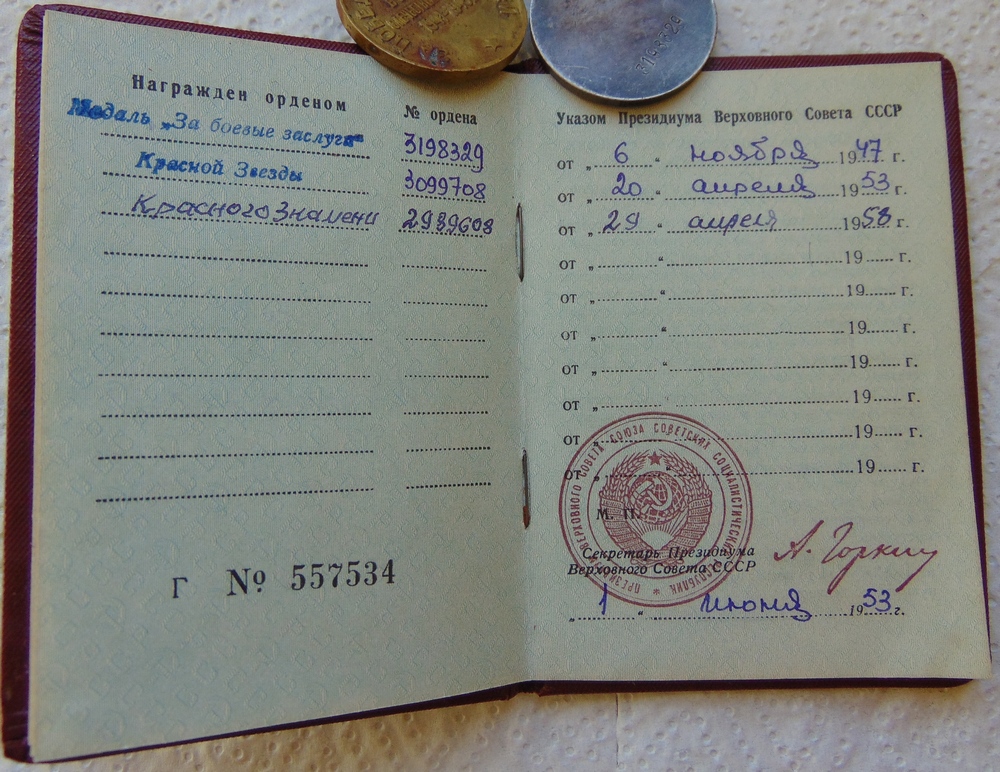 Награжден орденом
№ ордена
Медаль „За боевые заслуги“ 3198329
Красной Звезды 3099708
Красного Знамени 2939608
Г № 557534
Указом Президиума Верховного Совета СССР
от „ 6 “ ноября 1947 г.
от „ 20 “ апреля 1953 г.
от „ 29 “ апреля 1958 г.
от „ “ 19 г.
от „ “ 19 г.
от „ “ 19 г.
от „ “ 19 г.
от „ “ 19 г.
от „ “ 19 г.
от „ “ 19 г.
М. П.
ПРЕЗИДИУМ ВЕРХОВНОГО СОВЕТА СОЮЗА СОВЕТСКИХ СОЦИАЛИСТИЧЕСКИХ РЕСПУБЛИК
Секретарь Президиума
Верховного Совета СССР
А. Горкин
„ 1 “ июня 1953 г.